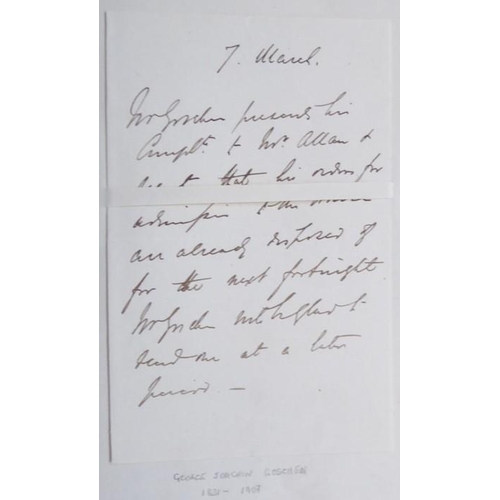 7. March.
Mr Goschen presents his
Complts. to Mr. Allan &
that his orders for
admission to the
are already disposed of
for the next fortnight
Mr Goschen will be glad to
send one at a later
period —
GEORGE JOACHIM GOSCHEN
1831 - 1907